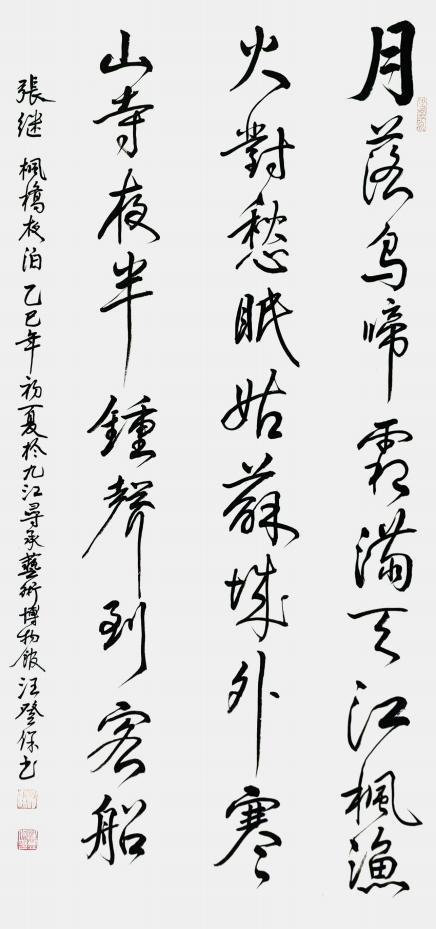 月落烏啼霜滿天江楓漁
火對愁眠姑蘇城外寒
山寺夜半鍾聲到客船
張继 楓橋夜泊 乙巳年初夏於九江尋承藝術博物館汪登保书